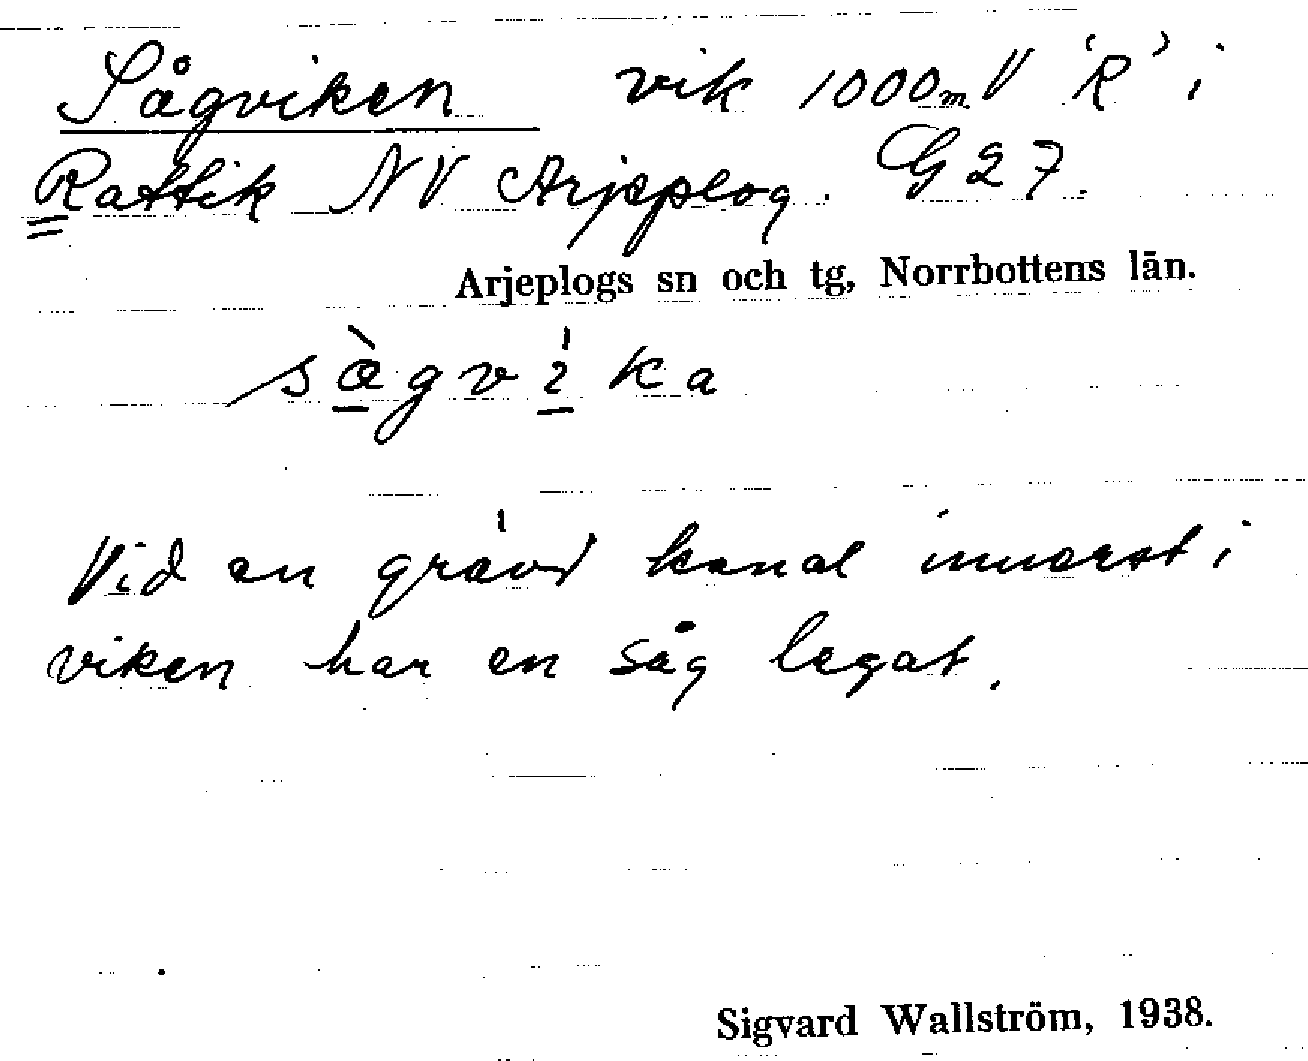 Sågviken vik 1000m V 'R' i
Rattik NV Arjeplog. G 27.
Arjeplogs sn och tg, Norrbottens län.
sàgvíka
Vid en grävd kanal innerst i
viken har en såg legat.
Sigvard Wallström, 1938.